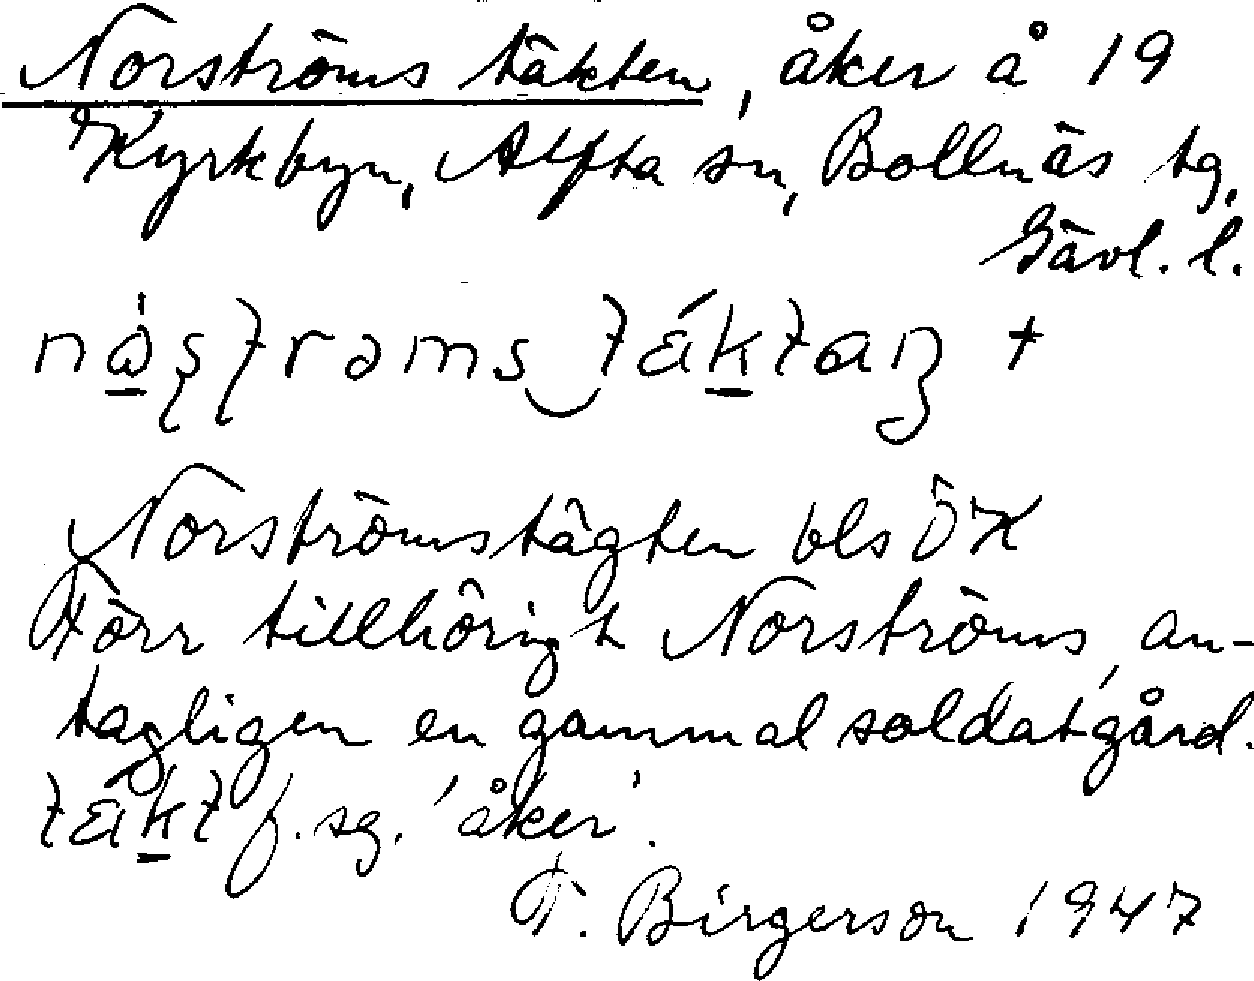 Norströms täkten, åker å 19
Kyrkbyn, Alfta sn, Bollnäs tg,
Gävl. l.
Norströmstägten bls ÖK
Förr tillhörigt Norströms, an-
tagligen en gammal soldatgård.
f. sg. 'åker'.
T. Birgerson 1947